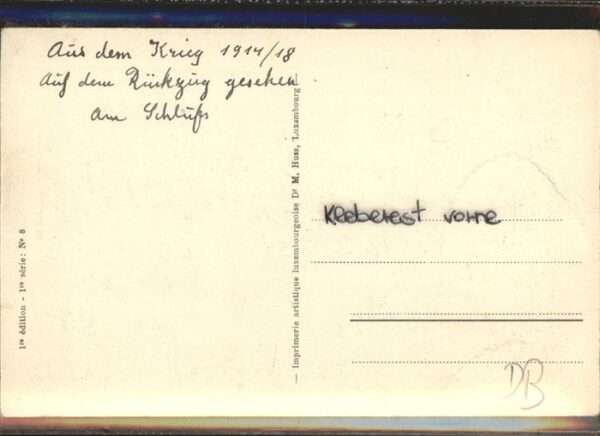 Aus dem Krieg 1914/18
Auf dem Rückzug gesehen
am Schluß
Kleberest vorne
— Imprimerie artistique luxembourgeoise Dr M. Huss, Luxembourg
1re édition - 1re série: No 8
DB